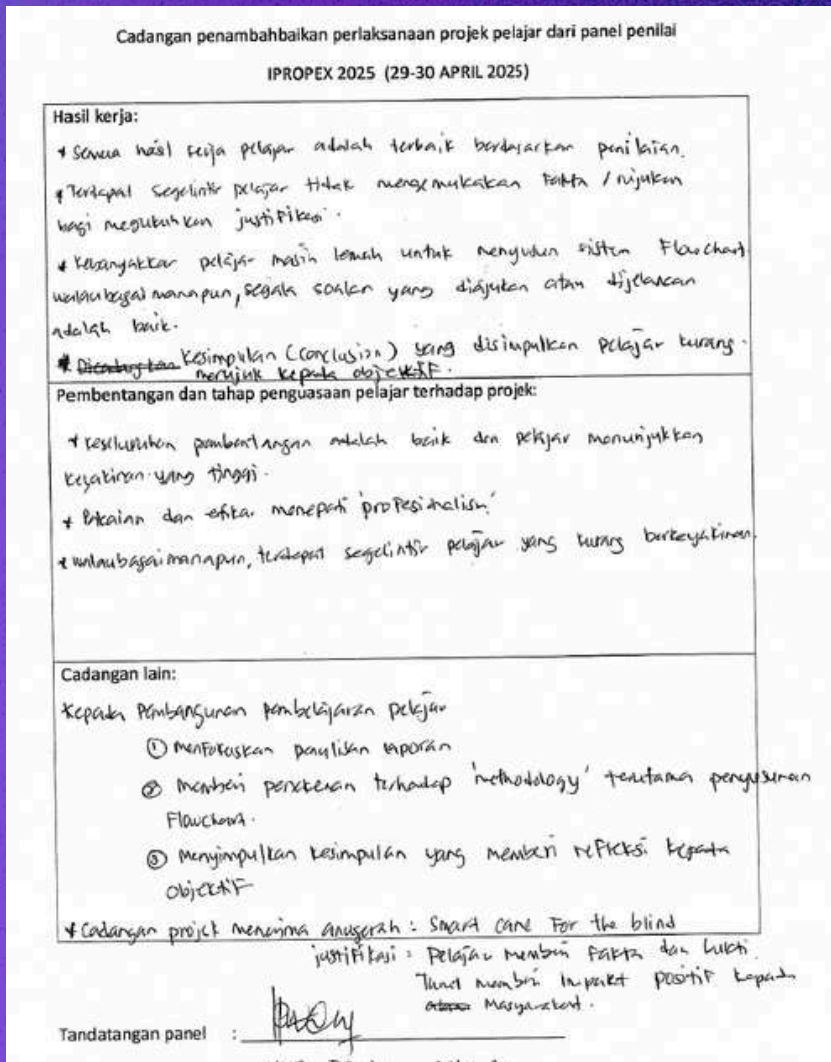 Cadangan penambahbaikan perlaksanaan projek pelajar dari panel penilai
IPROPEX 2025 (29-30 APRIL 2025)
Hasil kerja:
* Semua hasil kerja pelajar adalah terbaik berdasarkan penilaian.
* Terdapat segelintir pelajar tidak mengemukakan fakta / rujukan
bagi megukuhkan justifikasi.
* Kebanyakkan pelajar masih lemah untuk menyusun sistem Flowchart
walaubagaimanapun, segala soalan yang diajukan atau dijelaskan
adalah baik.
* Kesimpulan (conclusion) yang disimpulkan pelajar kurang
merujuk kepada objektif.
Pembentangan dan tahap penguasaan pelajar terhadap projek:
* Keseluruhan pembentangan adalah baik dan pelajar menunjukkan
keyakinan yang tinggi.
* Pakaian dan etika menepati 'profesionalism'
* walaubagaimanapun, terdapat segelintir pelajar yang kurang berkeyakinan.
Cadangan lain:
Kepada Pembangunan pembelajaran pelajar
① menfokuskan penulisan laporan
② memberi penekanan terhadap 'methodology' terutama penyusunan
Flowchart.
③ Menyimpulkan kesimpulan yang memberi refleksi kepada
objektif
* Cadangan projek menerima anugerah : Smart cane For the blind
justifikasi : Pelajar memberi fakta dan bukti
memberi impakt positif kepada
Masyarakat.
Tandatangan panel :